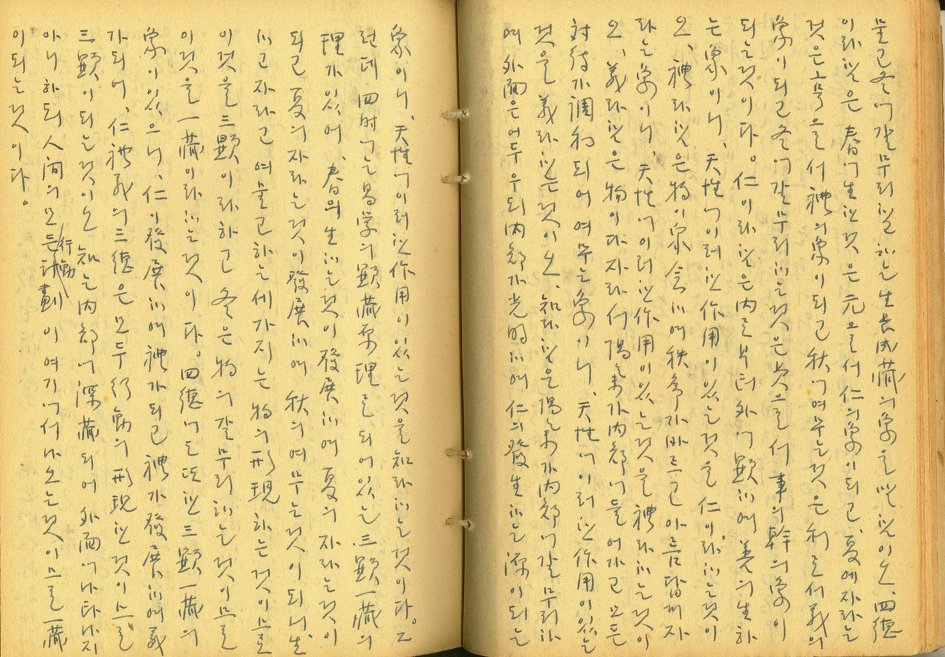 물고 冬에 갈무리함 하는 生長成藏의 象을 말함이오, 四德
이라 함은 春에 生함은 元으로서 仁의 象이 되고, 夏에 자라는
것은 亨으로서 禮의 象이 되고 秋에 여무는 것은 利로서 義의
象이 되고 冬에 갈무리하는 것은 貞으로서 事의 幹의 象이
되는 것이다. 仁이라 함은 内로부터 外에 顯하여 善의 生하
는 象이니, 天性에 이러한 作用이 있는 것을 仁이라 하는 것이
오, 禮라 함은 物이 하여 秩序가 바르고 아름답게 자
라는 象이니, 天性에 이러한 作用이 있는 것을 禮라 하는 것이
오, 義라 함은 物이 다 자라서 陽氣가 内部에 들어가고 모든
対待가 調和되어 여무는 象이니, 天性에 이러한 作用이 있는
것을 義라 하는 것이오, 知라 함은 陽氣가 内部에 갈무리하
여 外面은 어두우되 内部가 光明하여 仁의 發生하는 源이 되는
象이니, 天性에 이러한 作用이 있는 것을 知라 하는 것이다. 그
런데 四時에는 易学의 顯藏原理로 되어 있는 三顯一藏의
理가 있어, 春의 生하는 것이 發展하여 夏의 자라는 것이
되고 夏의 자라는 것이 發展하여 秋의 여무는 것이 되니, 生
하고 자라고 여물고 하는 세 가지는 物의 形現하는 것이므로
이것을 三顯이라 하고 冬은 物의 갈무리하는 것이므로
이것을 一藏이라 하는 것이다. 四德에도 또한 三顯一藏의
象이 있으니, 仁이 發展하여 禮가 되고 禮가 發展하여 義
가 되어, 仁禮義의 三德은 모두 行動의 形現한 것이므로
三顯이 되는 것이오 知는 内部에 深藏되어 外面에 나타나지
아니하되 人間의 모든 行動計劃이 여기에서 나오는 것이므로 一藏
이 되는 것이다.